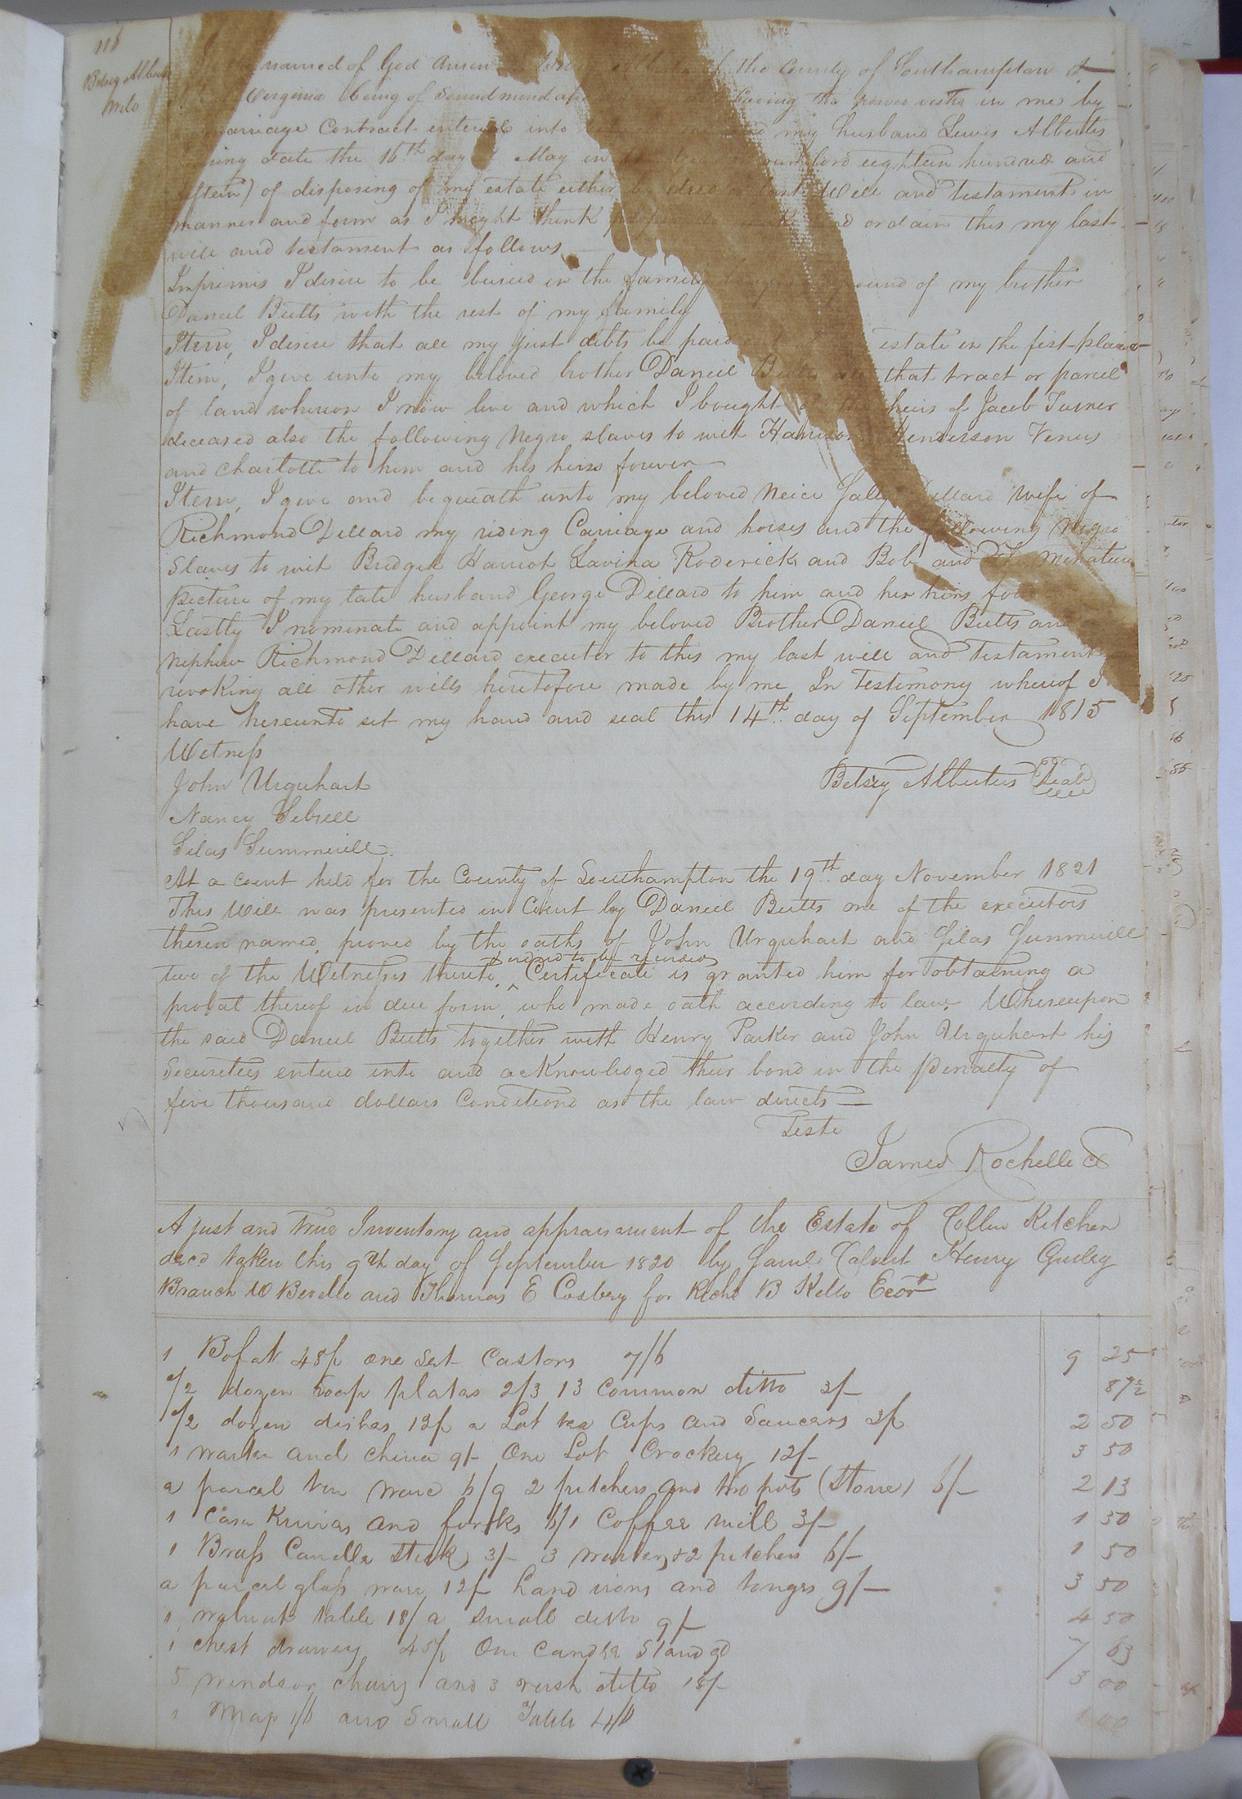 118
Betsey Alberti
Will
named of God Amen of the County of Southampton &
Virginia being of Sound mind having the power vested in me by
marriage Contract entered into my husband Lewis Albertis
date the 16th day of May in eighteen hundred and
of disposing of my estate either Will and testament in
manner and form as I might think and ordain this my last
will and testament as follows
Imprimis I desire to be buried in the family ground of my brother
Daniel Butts with the rest of my family
Item, I desire that all my just debts be paid estate in the first place
Item, I give unto my beloved brother Daniel Butts that tract or parcel
of land whereon I now live and which I bought heirs of Jacob Turner
deceased also the following Negro slaves to wit Henderson Venus
and Charlotte to him and his heirs forever
Item, I give and bequeath unto my beloved Neice Sally Dillard wife of
Richmond Dillard my riding Carriage and horses and the following Negro
Slaves to wit Bridget Harriot Lavina Roderick and Bob and the Minature
picture of my late husband George Dillard to him and her heirs
Lastly I nominate and appoint my beloved Brother Daniel Butts and
Nephew Richmond Dillard executor to this my last will and testament
revoking all other wills heretofore made by me In testimony whereof I
have hereunto set my hand and seal this 14th day of September 1815
Witness
John Urquhart
Betsey Albertis Seal
Nancy Sebrell
Silas Summerill
At a court held for the County of Southampton the 19th day November 1821
This Will was presented in Court by Daniel Butts one of the executors
therein named, proved by the oaths of John Urquhart and Silas Summerill
two of the Witnesses thereto, ^ and ord to be recorded Certificate is granted him for obtaining a
probat thereof in due form, who made oath according to law. Whereupon
the said Daniel Butts together with Henry Parker and John Urquhart his
Securities entered into and acknowledged their bond in the Penalty of
five thousand dollars Conditiond as the law directs
Teste
James Rochelle C
A just and true Inventory and appraisament of the Estate of Kitchen
decd taken this 9th day of September 1820 by Calvert Henry
Branch and Thomas E Cosbery for Richd B Kello Exor
1 Bofat 48/ one Set Castors 7/6 9 25
1/2 dozen Soop plates 2/3 13 common ditto 3/- 87 1/2
1/2 dozen dishes 12/ a Lot tea Cups and Saucers 3/ 2 50
1 waiter and china 9/- One Lot Crockery 12/- 3 50
a parcel tin ware 6/9 2 pitchers and two pots (stone) 6/- 2 13
1 Case Knives and forks 6/ 1 Coffee mill 3/- 1 50
1 Brass Candle stick 3/- 3 waiters & 2 pitchers 6/- 1 50
a parcel glass ware 12/ hand irons and tonges 9/- 3 50
1 walnut table 18/ a small ditto 9/- 4 50
1 chest drawers 45/ One Candle Stand 9d 7 63
5 windsor chairs and 3 rush ditto 18/- 3 00
1 Map 1/6 and Small Table 4/6